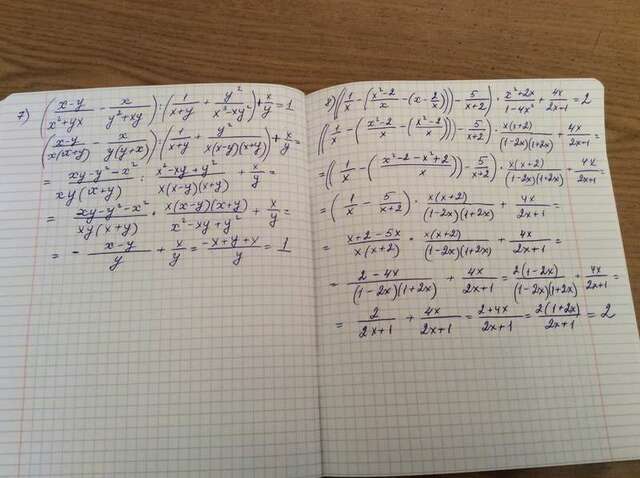 7) ((x-y)/(x²+yx) - x/(y²+xy)) : (1/(x+y) + y²/(x³-xy²)) + x/y = 1
((x-y)/(x(x+y)) - x/(y(y+x))) : (1/(x+y) + y²/(x(x-y)(x+y))) + x/y =
= (xy-y²-x²)/(xy(x+y)) : (x²-xy+y²)/(x(x-y)(x+y)) + x/y =
= (xy-y²-x²)/(xy(x+y)) · (x(x-y)(x+y))/(x²-xy+y²) + x/y =
= - (x-y)/y + x/y = (-x+y+x)/y = 1
8) ((1/x - ((x²-2)/x - (x-2/x))) - 5/(x+2)) · (x²+2x)/(1-4x²) + 4x/(2x+1) = 2
((1/x - ((x²-2)/x - ((x²-2)/x))) - 5/(x+2)) · x(x+2)/((1-2x)(1+2x)) + 4x/(2x+1) =
= ((1/x - ((x²-2-x²+2)/x)) - 5/(x+2)) · x(x+2)/((1-2x)(1+2x)) + 4x/(2x+1) =
= (1/x - 5/(x+2)) · x(x+2)/((1-2x)(1+2x)) + 4x/(2x+1) =
= (x+2-5x)/(x(x+2)) · x(x+2)/((1-2x)(1+2x)) + 4x/(2x+1) =
= (2-4x)/((1-2x)(1+2x)) + 4x/(2x+1) = 2(1-2x)/((1-2x)(1+2x)) + 4x/(2x+1) =
= 2/(2x+1) + 4x/(2x+1) = (2+4x)/(2x+1) = 2(1+2x)/(2x+1) = 2